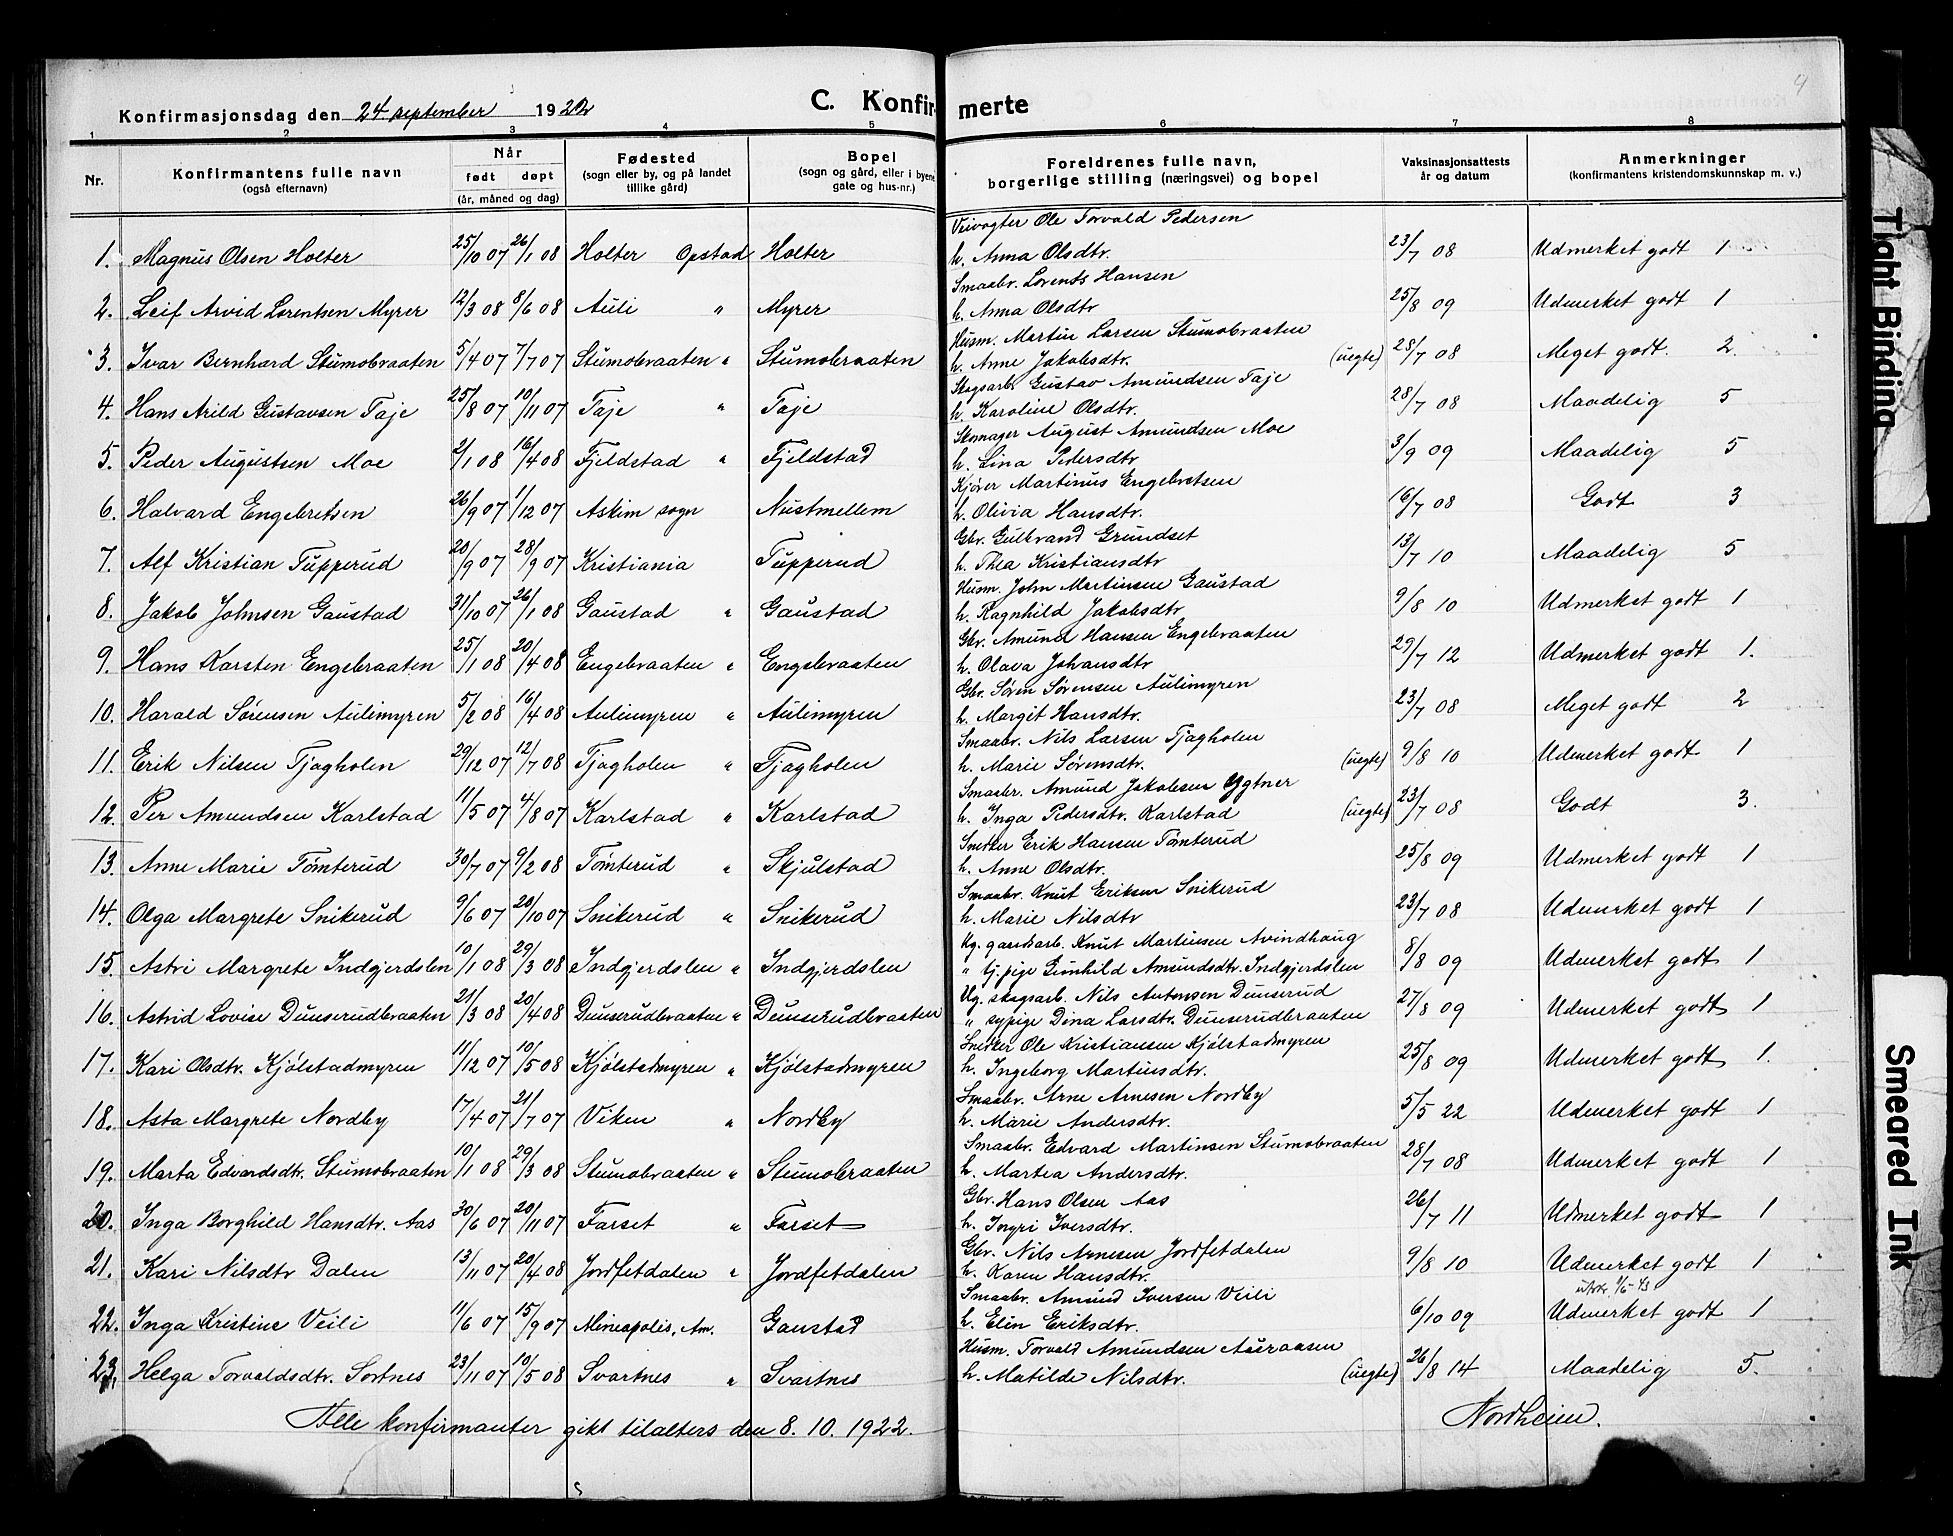 C. Konfirmerte
4
Konfirmasjonsdag den 24. september 1922
1 2 3 4 5 6 7 8
Nr. Konfirmantens fulle navn (også efternavn) Når født døpt (år, måned og dag) Fødested (sogn eller by, og på landet tillike gård) Bopel (sogn og gård, eller i byene gate og hus-nr.) Foreldrenes fulle navn, borgerlige stilling (næringsvei) og bopel Vaksinasjonsattests år og datum Anmerkninger (konfirmantens kristendomskunnskap m. v.)
Veivogter Ole Torvald Pedersen
1. Magnus Olsen Holter 25/10 07 26/1 08 Holter Opstad Holter h. Anna Olsdtr. 23/7 08 Udmerket godt 1
Smaabr. Lorents Hansen
2. Leif Arvid Lorentsen Myrer 12/3 08 8/6 08 Auli " Myrer h. Anna Olsdtr 25/8 09 Udmerket godt 1
Husm. Martin Larsen Stumobraaten
3. Ivar Bernhard Stumobraaten 5/4 07 7/7 07 Stumobraaten " Stumobraaten h. Anne Jakobsdtr. (uegte) 28/7 08 Meget godt. 2
Skogsarb. Gustav Amundsen Taje
4. Hans Arild Gustavsen Taje 25/8 07 10/11 07 Taje " Taje h. Karoline Olsdtr. 28/7 08 Maadelig 5
Skomager August Amundsen Moe
5. Peder Augustsen Moe 2/1 08 16/4 08 Fjeldstad " Fjeldstad h. Lina Pedersdtr 3/9 09 Maadelig 5
Kjører Martinus Engebretsen
6. Halvard Engebretsen 26/9 07 1/12 07 Askim sogn Nustmellem h. Olivia Hansdtr. 16/7 08 Godt 3
Gbr. Gulbrand Grundset
7. Alf Kristian Tupperud 20/9 07 28/9 07 Kristiania Tupperud h. Thea Kristiansdtr 13/7 10 Maadelig 5
Husm. John Martinsen Gaustad
8. Jakob Johnsen Gaustad 31/10 07 26/1 08 Gaustad " Gaustad h. Ragnhild Jakobsdtr 9/8 10 Udmerket godt 1
Gbr. Amund Hansen Engebraaten
9. Hans Karsten Engebraaten 25/1 08 20/4 08 Engebraaten " Engebraaten h. Olava Johansdtr 29/7 12 Udmerket godt 1.
Gbr. Søren Sørensen Aulimyren
10. Harald Sørensen Aulimyren 5/2 08 16/4 08 Aulimyren " Aulimyren h. Margit Hansdtr. 23/7 08 Meget godt 2
Smaabr. Nils Larsen Tjagholen
11. Erik Nilsen Tjagholen 29/12 07 12/7 08 Tjagholen " Tjagholen h. Marie Sørensdtr. (uegte) 9/8 10 Udmerket godt 1
Smaabr. Amund Jakobsen Ygtner
12. Per Amundsen Karlstad 11/5 07 4/8 07 Karlstad " Karlstad h. Inga Pedersdtr. Karlstad (uegte) 23/7 08 Godt 3.
Snekker Erik Hansen Tömterud
13. Anne Marie Tömterud 30/7 07 9/2 08 Tömterud " Skjulstad h. Anne Olsdtr. 25/8 09 Udmerket godt 1
Smaabr. Knut Eriksen Snikerud
14. Olga Margrete Snikerud 9/6 07 20/10 07 Snikerud " Snikerud h. Marie Nilsdtr 23/7 08 Udmerket godt 1
Ug. gaardsarb. Knut Martinsen Avindhaug
15. Astri Margrete Indgjerdslen 10/1 08 29/3 08 Indgjerdslen " Indgjerdslen " tj.pige Gunhild Amundsdtr. Indgjerdslen 8/8 09 Udmerket godt 1
Ug. skogsarb. Nils Antonsen Dunserud
16. Astrid Lovise Dunserudbraaten 21/3 08 20/4 08 Dunserudbraaten " Dunserudbraaten " sypige Dina Larsdtr. Dunserudbraaten 27/8 09 Udmerket godt 1
Snekker Ole Kristiansen Kjølstadmyren
17. Kari Olsdtr. Kjølstadmyren 11/12 07 10/5 08 Kjølstadmyren " Kjølstadmyren h. Ingeborg Martinsdtr. 25/8 09 Udmerket godt 1.
Smaabr. Arne Arnesen Nordby
18. Asta Margrete Nordby 17/4 07 21/7 07 Viken " Nordby h. Marie Andersdtr. 5/5 22 Udmerket godt 1
Smaabr. Edvard Martinsen Stumobraaten
19. Marta Edvardsdtr. Stumobraaten 10/1 08 29/3 08 Stumobraaten " Stumobraaten h. Martea Andersdtr. 28/7 08 Udmerket godt 1
Gbr. Hans Olsen Aas
20. Inga Borghild Hansdtr. Aas 30/6 07 20/11 07 Farset " Farset h. Ingri Iversdtr. 26/7 11 Udmerket godt 1
Gbr. Nils Arnesen Jordfetdalen
21. Kari Nilsdtr Dalen 13/11 07 20/4 08 Jordfetdalen " Jordfetdalen h. Karen Hansdtr. 9/8 10 Udmerket godt 1
Smaabr. Amund Iversen Veili
22. Inga Kristine Veili 11/6 07 15/9 07 Mineapolis, Am. Gaustad h. Elin Eriksdtr. 6/10 09 Udmerket godt 1
Husm. Torvald Amundsen Aaeraasen
23. Helga Torvaldsdtr. Sortnes 23/11 07 10/5 08 Svartnes " Svartnes h. Matilde Nilsdtr. (uegte) 26/8 14 Maadelig 5.
Alle konfirmanter gikk tilalters den 8. 10. 1922.
Nordheim.
Tight Binding
Smeared Ink